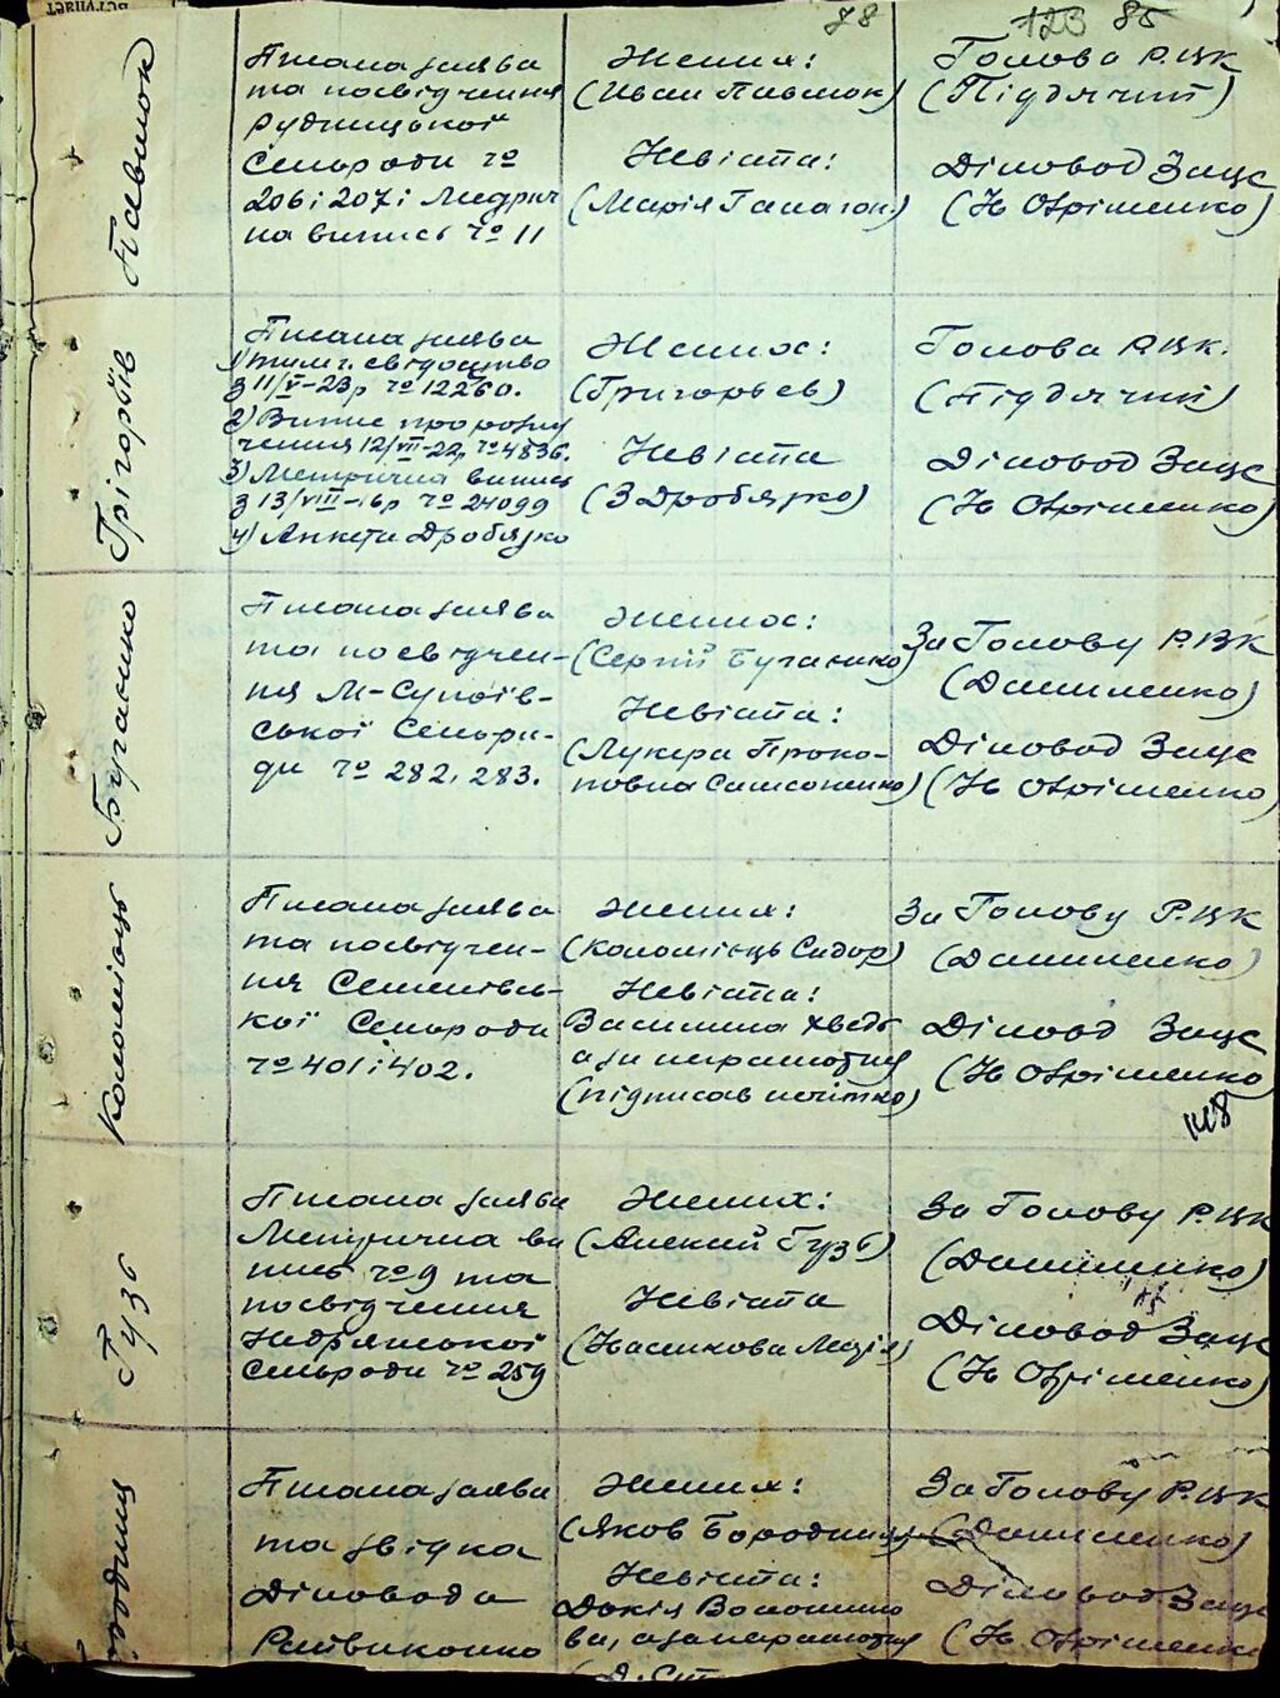 78
123 85
Павлюк
Писана заява
та посвідчення
Рудницької
Сельради №
206 і 207 і Медрич
на випись № 11
Жених:
(Иван Павлюк)
Невіста:
(Марія Галаган)
Голова Р.ВК
(Піддячий)
Діловод Загс
(Н Охріменко)
Грігорїв
Писана заява
1) тимч. свідоцтво
з 11/V-23р № 12260.
2) Випис про розлу
чення 12/VII-22р №4836.
3) Метрична випись
з 13/VIII-16р № 24099
4) Анкета Дробязко
Жених:
(Григорьев)
Невіста
(З Дробязко)
Голова Р.ВК.
(Піддячий)
Діловод Загс
(Н Охріменко)
Бугаенко
Писана заява
та посвідчен-
ня М-Супоїв-
ської Сельра-
ди № 282, 283.
Жених:
(Сергій Бугаенко)
Невіста:
(Лукера Проко-
повна Самсоненко)
За Голову Р.ВК
(Даниленко)
Діловод Загс
(Н Охріменко)
Коломієць
Писана заява
та посвідчен-
ня Семенівсь-
кої Сельради
№ 401 і 402.
Жених:
(Коломієць Сидор)
Невіста:
Василина
а за неграмотну
(підписав нечітко)
За Голову Р.ВК
(Даниленко)
Діловд Загс
(Н Охріменко)
Гузь
Писана заява
Метрична ви
пись № 9 та
посвідчення
Сельради № 259
Жених:
(Алексій Гузь)
Невіста
(Марія)
За Голову Р.ВК
(Даниленко)
Діловод Загс
(Н Охріменко)
родиня
Писана заява
та звідка
Діловода
Райвиконко
Жених:
(Яков Бородиня)
Невіста:
Докія Волошино
ва, а за неграмотну
За Голову Р.ВК
(Даниленко)
Діловод Загс
(Н Охріменко